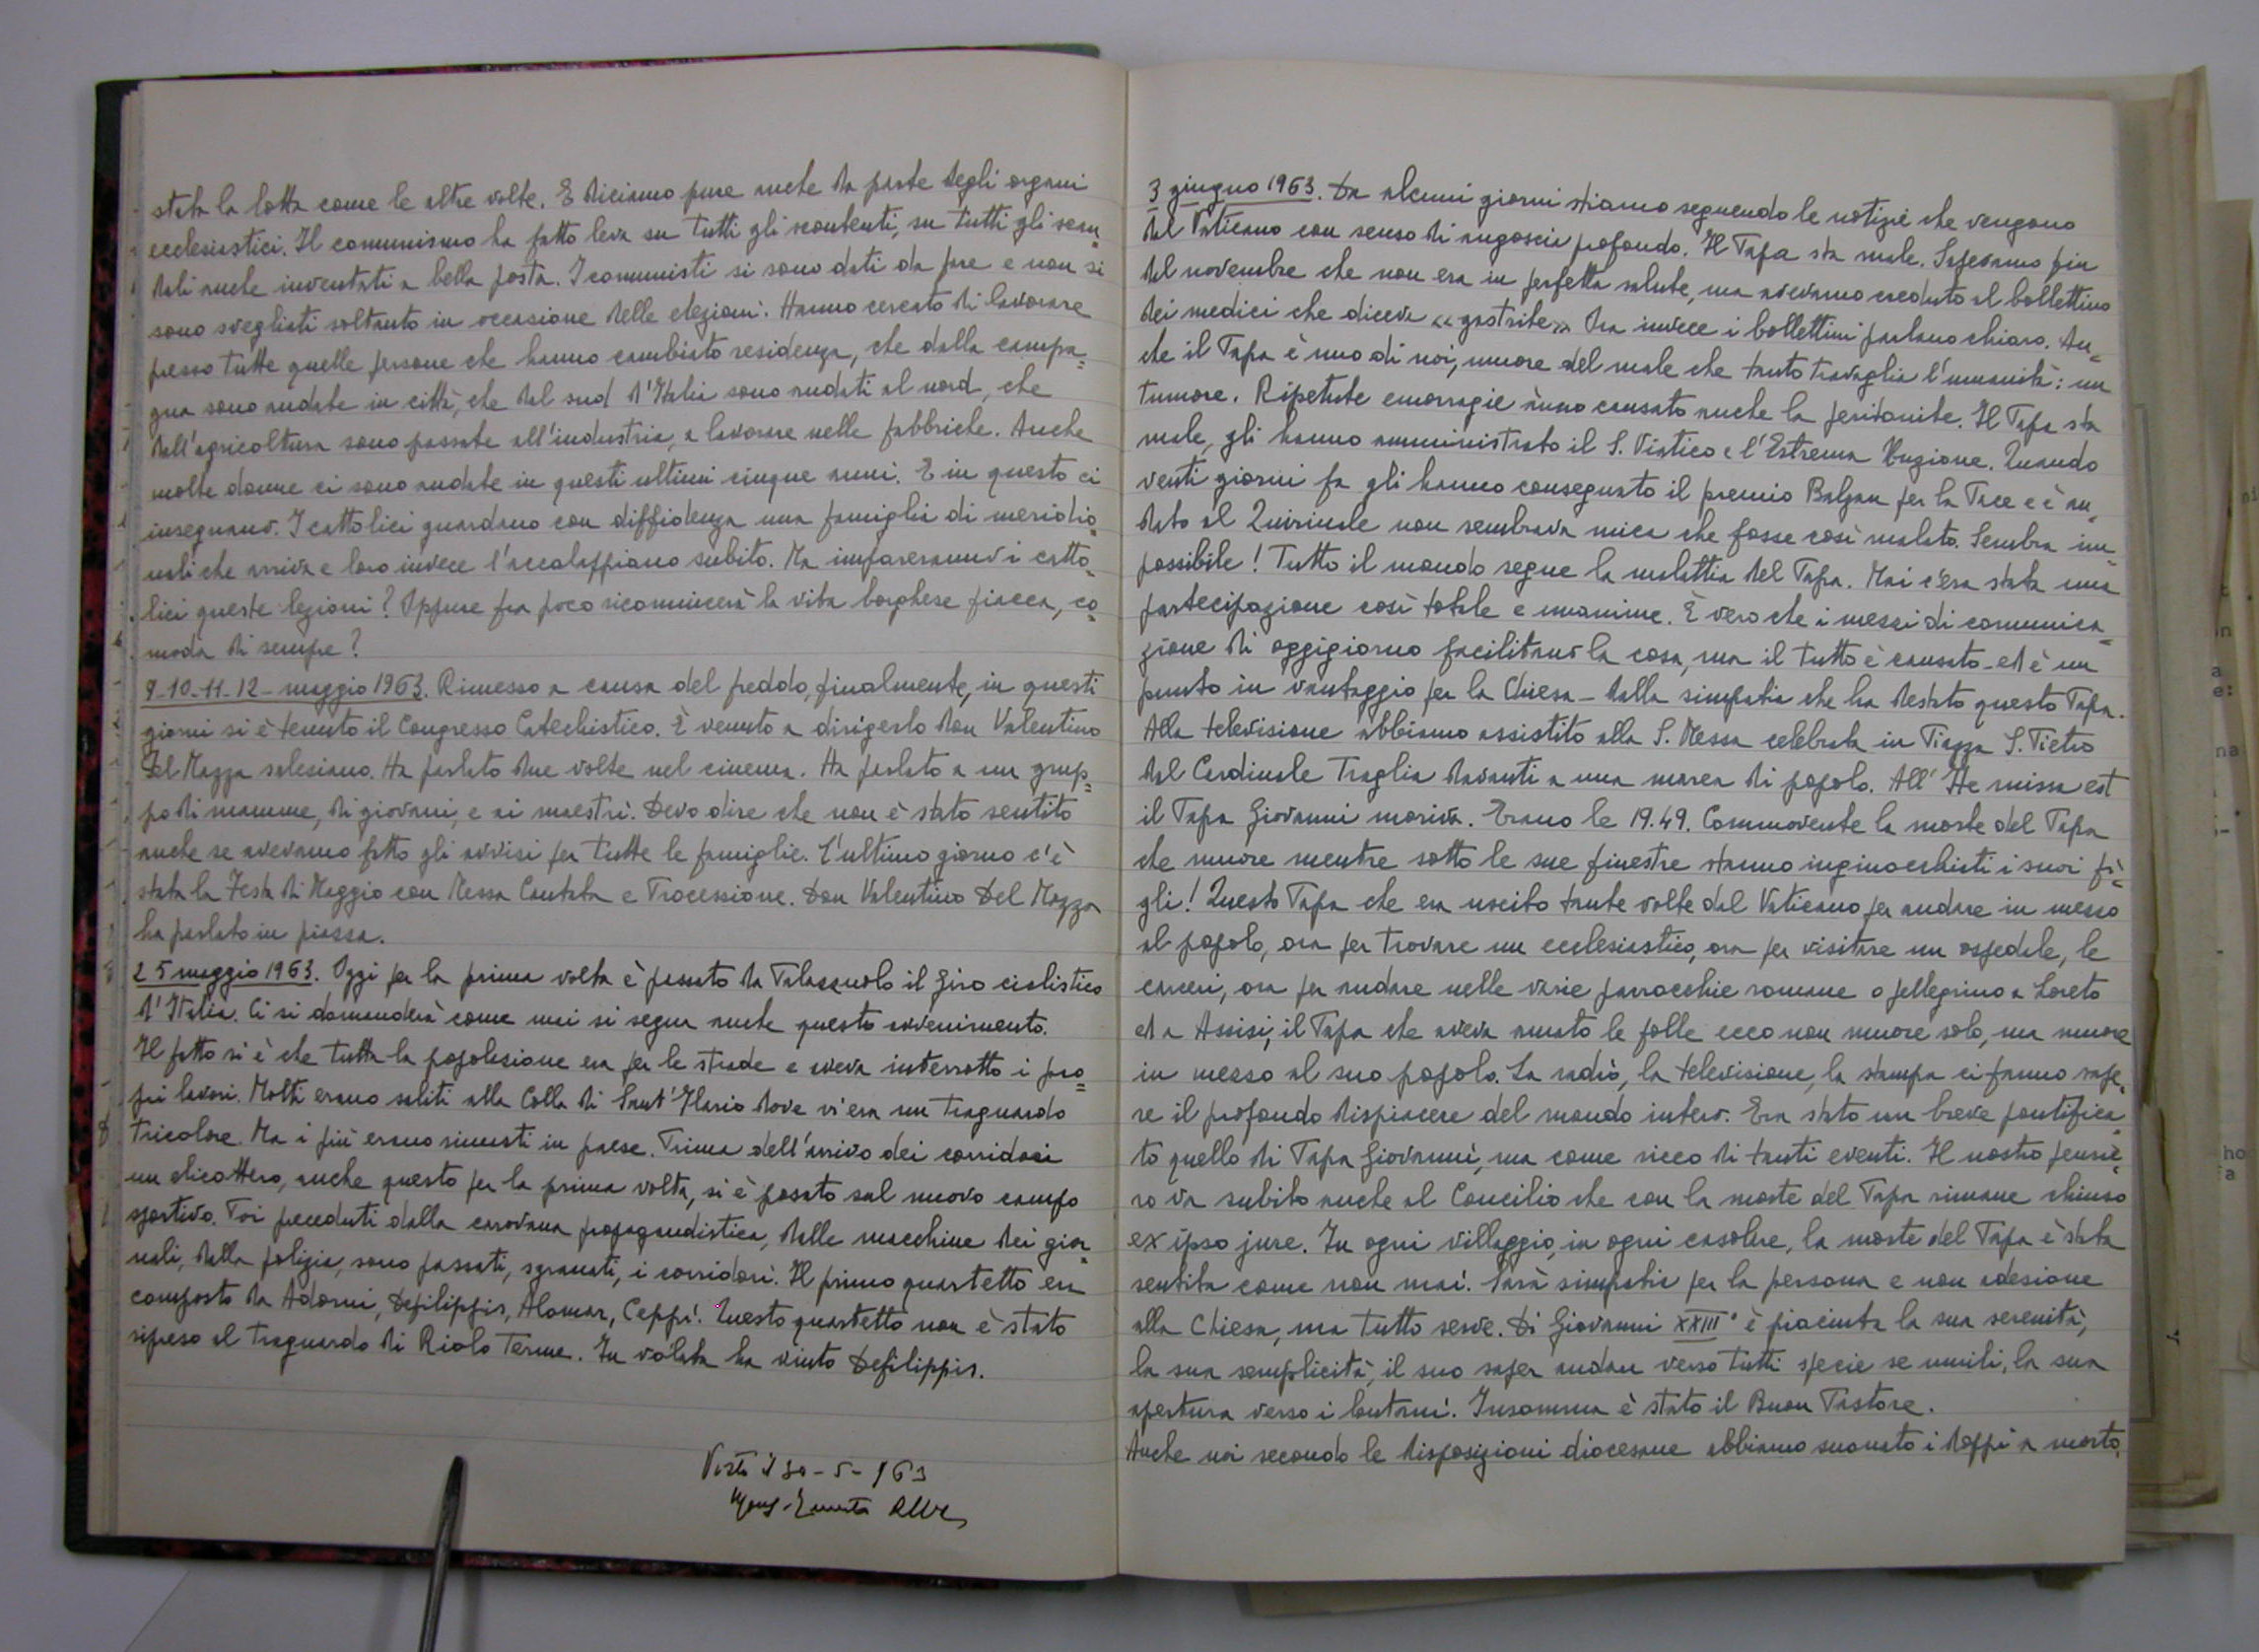 stata la lotta come le altre volte. E diciamo pure anche da parte degli organi
ecclesiastici. Il comunismo ha fatto leva su tutti gli scontenti, su tutti gli scan=
dali anche inventati a bella posta. I comunisti si sono dati da fare e non si
sono svegliati soltanto in occasione delle elezioni. Hanno cercato di lavorare
presso tutte quelle persone che hanno cambiato residenza, che dalla campa=
gna sono andate in città, che dal sud d'Italia sono andati al nord, che
dall'agricoltura sono passate all'industria, a lavorare nelle fabbriche. Anche
molte donne ci sono andate in questi ultimi cinque anni. E in questo ci
insegnano. I cattolici guardano con diffidenza una famiglia di meridio=
nali che arriva e loro invece l'accalappiano subito. Ma impareranno i catto=
lici queste lezioni? Oppure fra poco ricomincerà la vita borghese fiacca, co=
moda di sempre?
9-10-11-12- maggio 1963. Rimesso a causa del freddo, finalmente, in questi
giorni si è tenuto il Congresso Catechistico. È venuto a dirigerlo don Valentino
Del Mazza salesiano. Ha parlato due volte nel cinema. Ha parlato a un grup=
po di mamme, di giovani, e ai maestri. Devo dire che non è stato sentito
anche se avevamo fatto gli avvisi per tutte le famiglie. L'ultimo giorno c'è
stata la Festa di Maggio con Messa Cantata e Processione. Don Valentino Del Mazza
ha parlato in piazza.
25 maggio 1963. Oggi per la prima volta è passato da Palazzuolo il Giro ciclistico
d'Italia. Ci si domanderà come mai si segna anche questo avvenimento.
Il fatto si è che tutta la popolazione era per le strade e aveva interrotto i pro=
pri lavori. Molti erano saliti alla Colla di Sant'Ilario dove vi era un traguardo
tricolore. Ma i più erano rimasti in paese. Prima dell'arrivo dei corridori
un elicottero, anche questo per la prima volta, si è posato sul nuovo campo
sportivo. Poi preceduti dalla carovana propagandistica, dalle macchine dei gior=
nali, dalla polizia, sono passati, sgranati, i corridori. Il primo quartetto era
composto da Adorni, Defilippis, Alomar, Ceppi. Questo quartetto non è stato
ripreso al traguardo di Riolo Terme. In volata ha vinto Defilippis.
Visto il 30-5-963
3 giugno 1963. Da alcuni giorni stiamo seguendo le notizie che vengono
dal Vaticano con senso di angoscia profondo. Il Papa sta male. Sapevamo fin
dal novembre che non era in perfetta salute, ma avevamo creduto al bollettino
dei medici che diceva «gastrite». Ora invece i bollettini parlano chiaro. An=
che il Papa è uno di noi, muore del male che tanto travaglia l'umanità: un
tumore. Ripetute emorragie ànno causato anche la peritonite. Il Papa sta
male, gli hanno amministrato il S. Viatico e l'Estrema Unzione. Quando
venti giorni fa gli hanno consegnato il premio Balzan per la Pace e è an=
dato al Quirinale non sembrava mica che fosse così malato. Sembra im=
possibile! Tutto il mondo segue la malattia del Papa. Mai c'era stata una
partecipazione così totale e unanime. È vero che i mezzi di comunica=
zione di oggigiorno facilitano la cosa, ma il tutto è causato - ed è un
punto in vantaggio per la Chiesa - dalla simpatia che ha destato questo Papa.
Alla televisione abbiamo assistito alla S. Messa celebrata in Piazza S. Pietro
dal Cardinale Traglia davanti a una marea di popolo. All' Ite missa est
il Papa Giovanni moriva. Erano le 19.49. Commovente la morte del Papa
che muore mentre sotto le sue finestre stanno inginocchiati i suoi fi=
gli! Questo Papa che era uscito tante volte dal Vaticano per andare in mezzo
al popolo, ora per trovare un ecclesiastico, ora per visitare un ospedale, le
carceri, ora per andare nelle varie parrocchie romane o pellegrino a Loreto
ed a Assisi, il Papa che aveva amato le folle ecco non muore solo, ma muore
in mezzo al suo popolo. La radio, la televisione, la stampa ci fanno sape=
re il profondo dispiacere del mondo intero. Era stato un breve pontifica=
to quello di Papa Giovanni, ma come ricco di tanti eventi. Il nostro pensie=
ro va subito anche al Concilio che con la morte del Papa rimane chiuso
ex ipso jure. In ogni villaggio, in ogni casolare, la morte del Papa è stata
sentita come non mai. Sarà simpatia per la persona e non adesione
alla Chiesa, ma tutto serve. Di Giovanni XXIII° è piaciuta la sua serenità,
la sua semplicità, il suo saper andare verso tutti specie se umili, la sua
apertura verso i lontani. Insomma è stato il Buon Pastore.
Anche noi secondo le disposizioni diocesane abbiamo suonato i doppi a morto.